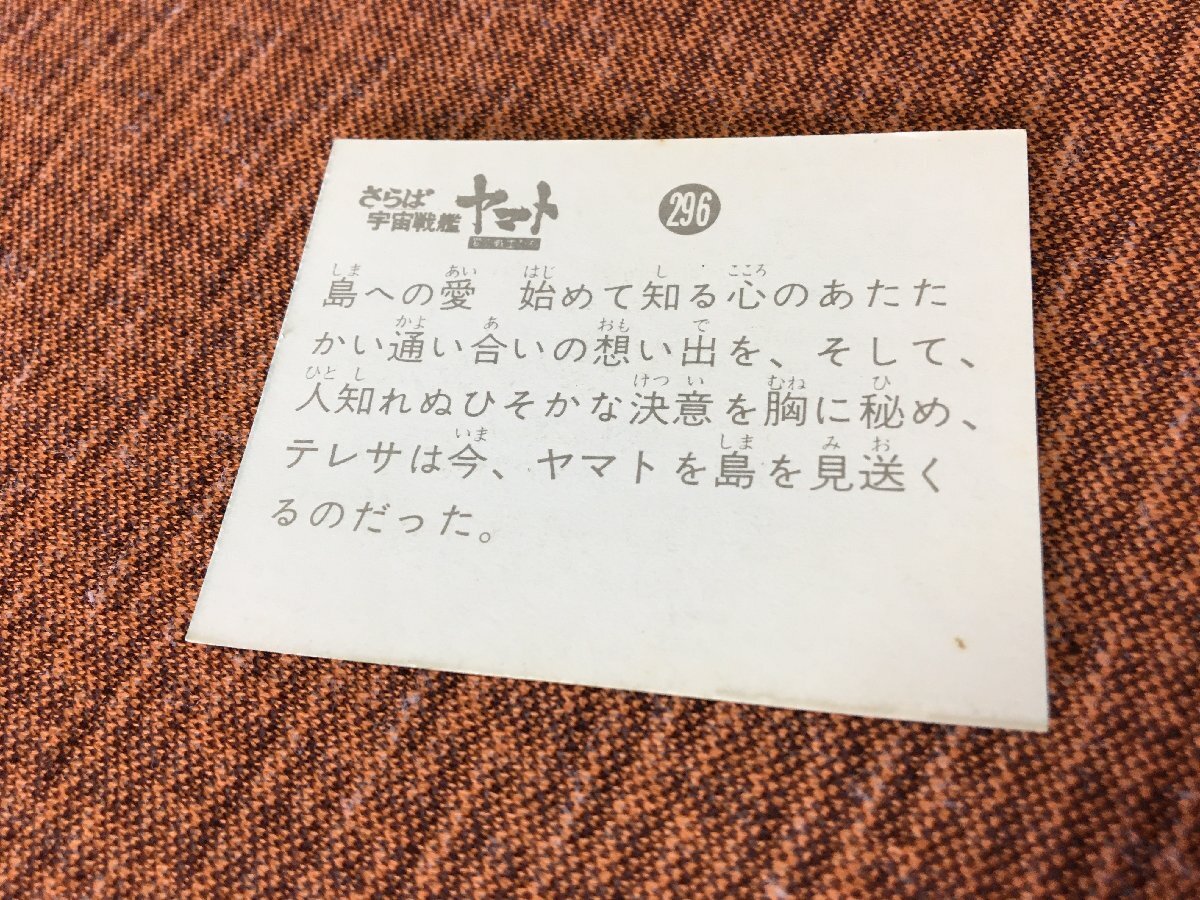 さらば
宇宙戦艦
ヤマト
296
島への愛 始めて知る心のあたた
かい通い合いの想い出を、そして、
人知れぬひそかな決意を胸に秘め、
テレサは今、ヤマトを島を見送く
るのだった。